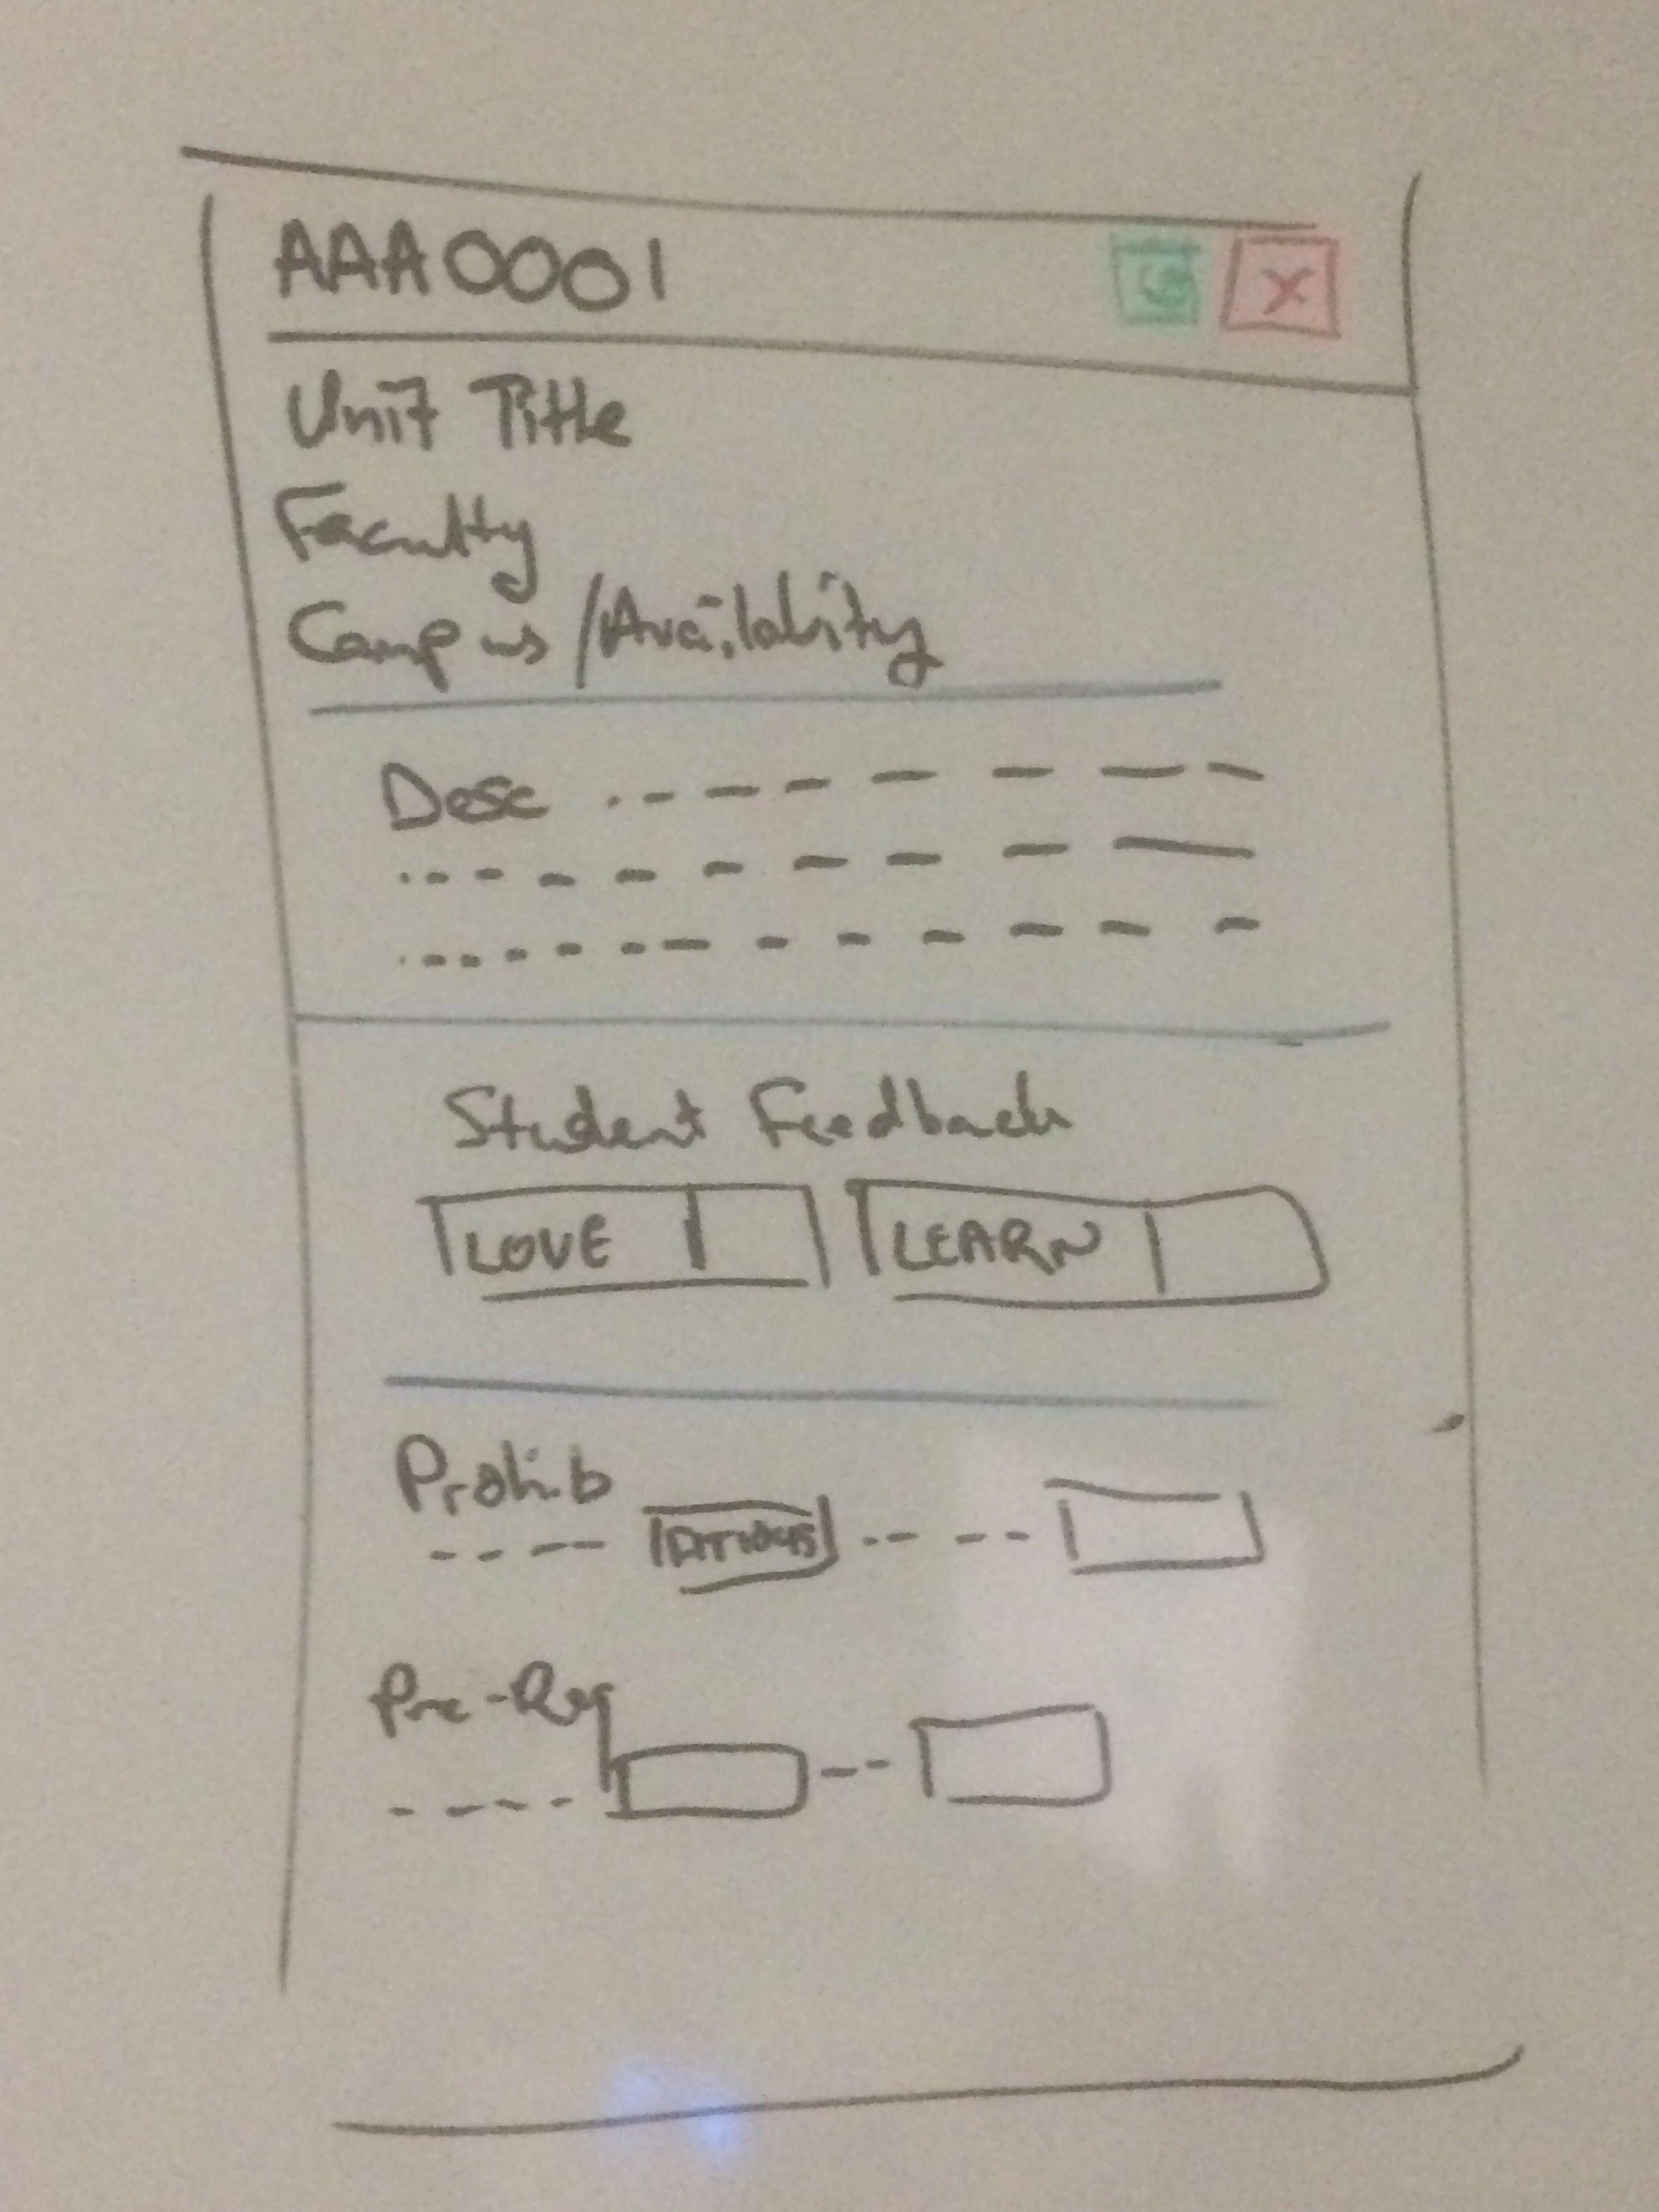 AAA0001 X
Unit Title
Faculty
Campus / Availability
Desc
Student Feedback
LOVE LEARN
Prohib
Pre-Req